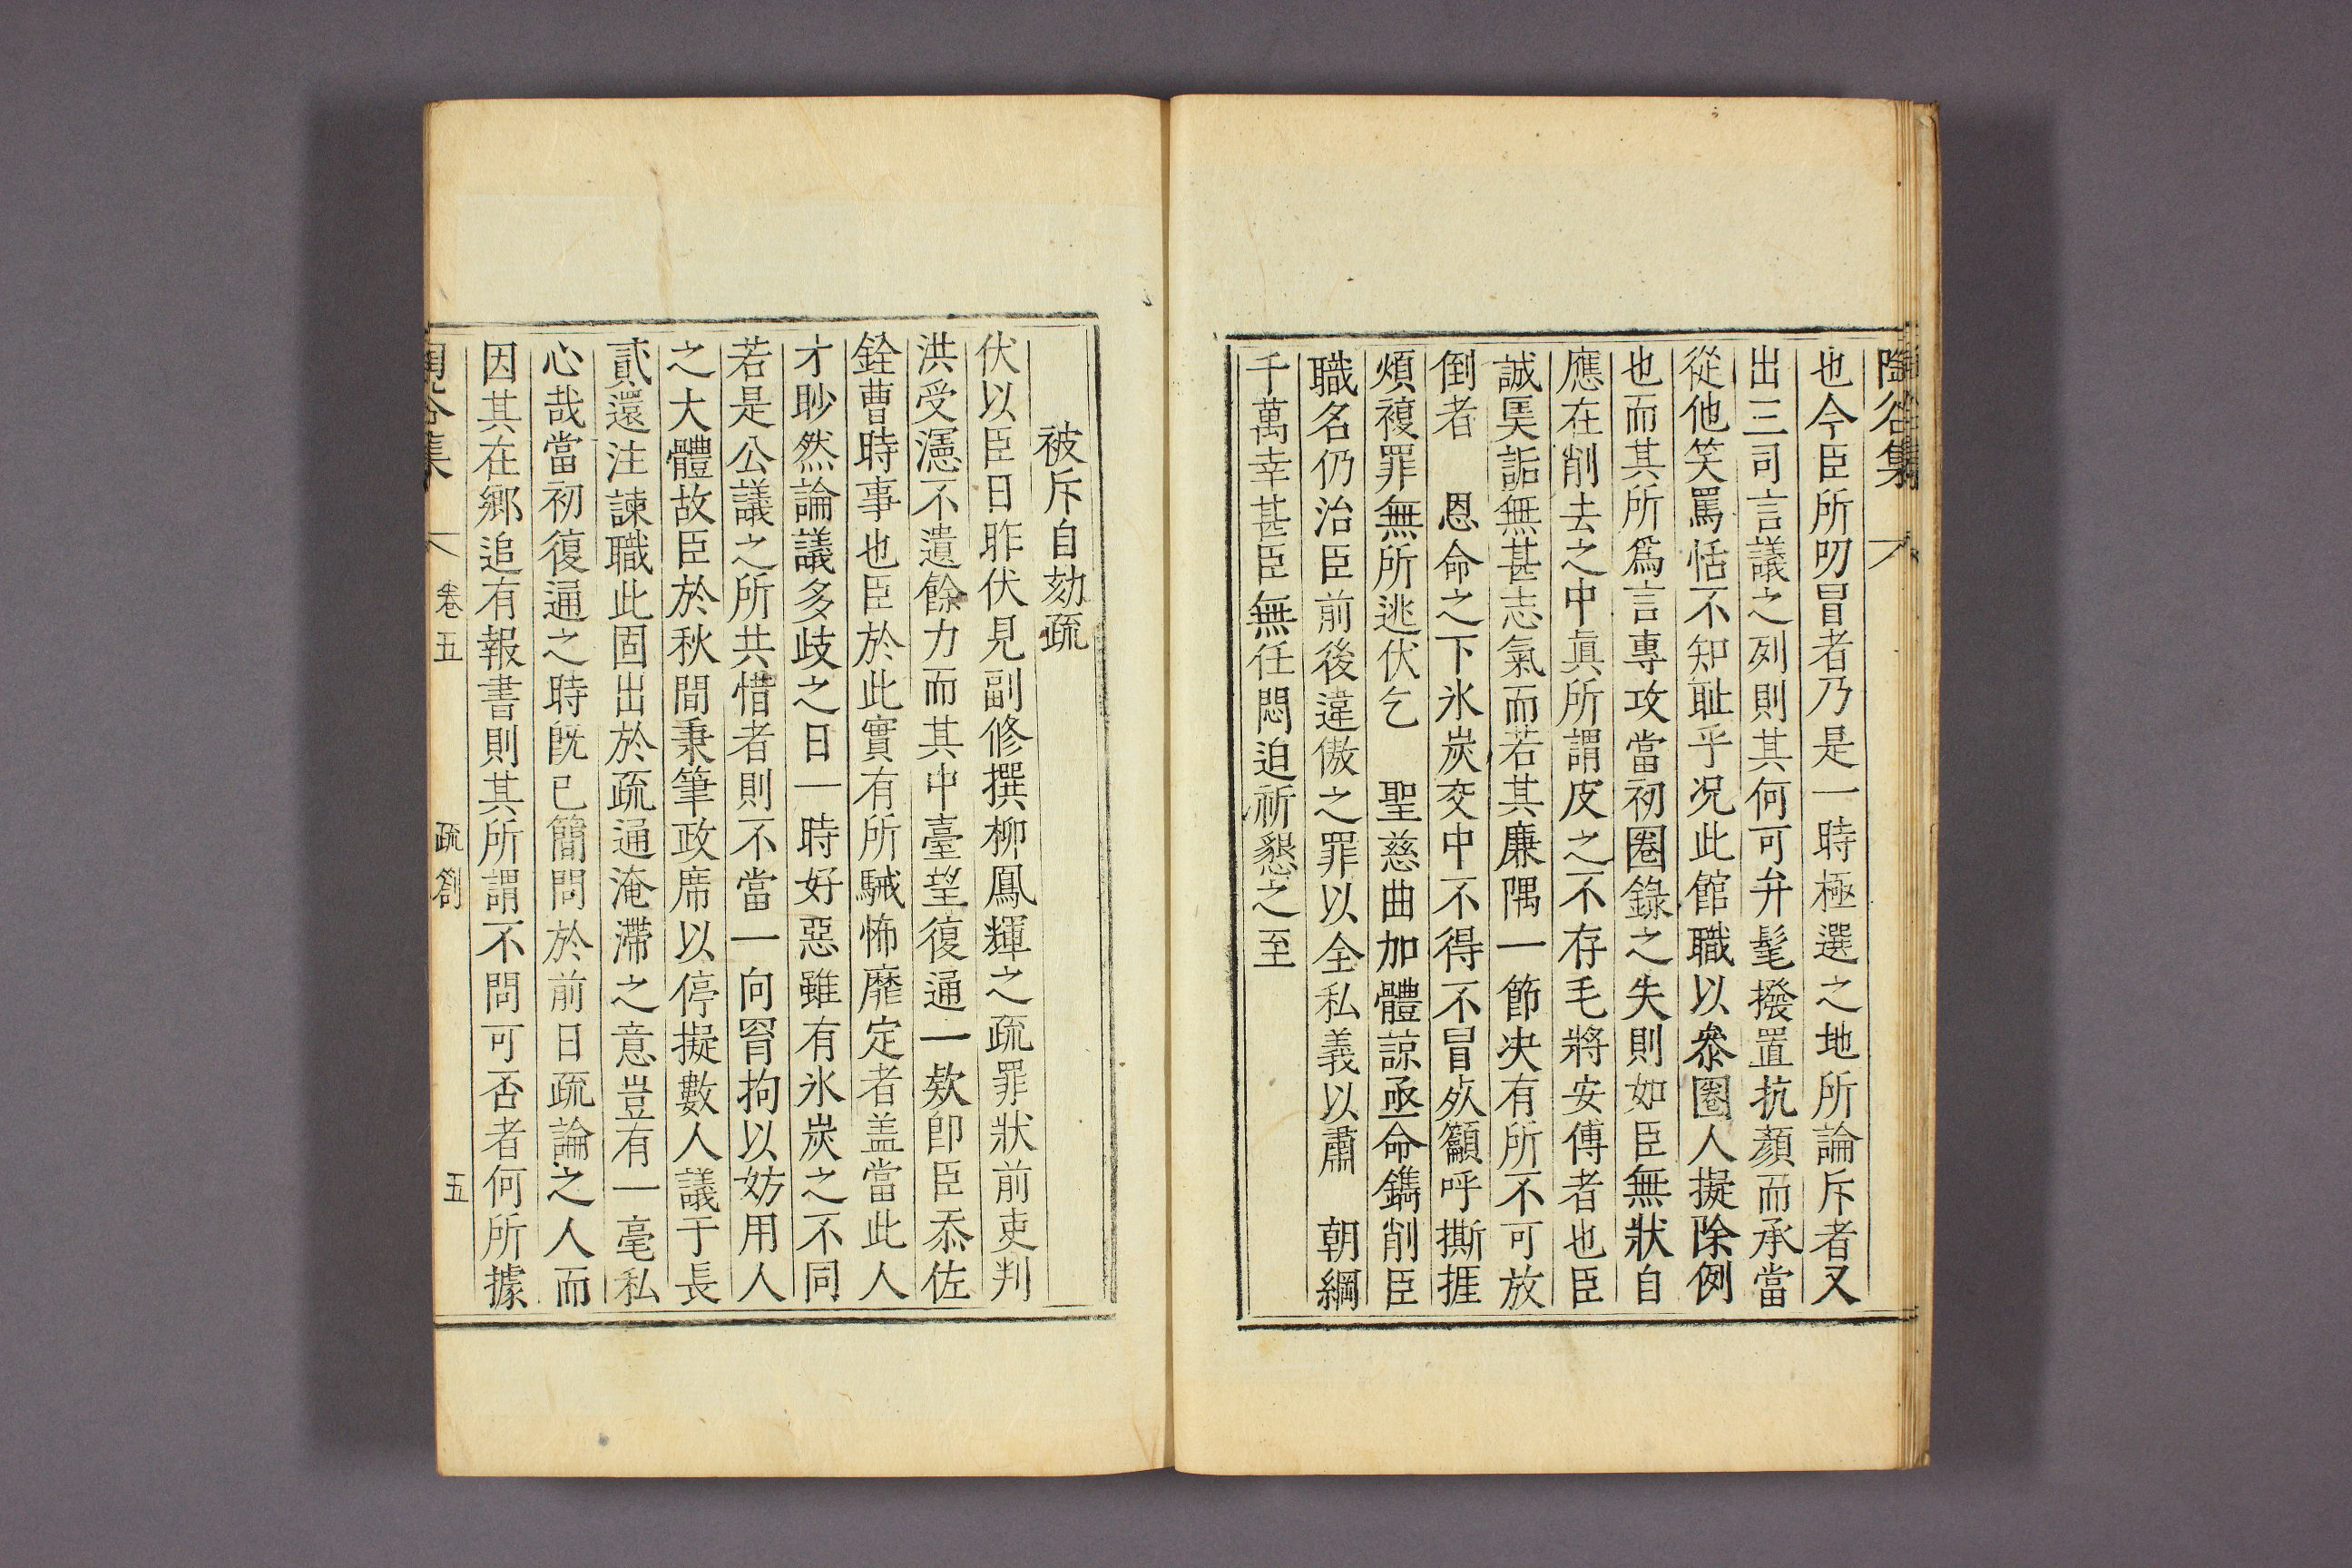 陶谷集
也今臣所叨冒者乃是一時極選之地所論斥者又
出三司言議之列則其何可弁髦撥置抗顏而承當
從他笑罵恬不知耻乎况此館職以叅圈人擬除例
也而其所爲言專攻當初圈錄之失則如臣無狀自
應在削去之中眞所謂皮之不存毛將安傅者也臣
誠𠱘詬無甚志氣而若其廉隅一節决有所不可放
倒者 恩命之下氷炭交中不得不冒死籲呼撕捱
煩複罪無所逃伏乞 聖慈曲加體諒亟命鐫削臣
職名仍治臣前後違傲之罪以全私義以肅 朝綱
千萬幸甚臣無任悶迫祈懇之至
被斥自劾疏
伏以臣日昨伏見副修撰柳鳳輝之疏罪狀前吏判
洪受瀗不遺餘力而其中臺望復通一欵卽臣忝佐
銓曹時事也臣於此實有所駴怖靡定者盖當此人
才眇然論議多歧之日一時好惡雖有氷炭之不同
若是公議之所共惜者則不當一向胥拘以妨用人
之大體故臣於秋間秉筆政席以停擬數人議于長
貳還注諫職此固出於疏通淹滯之意豈有一毫私
心哉當初復通之時旣已簡問於前日疏論之人而
因其在鄉追有報書則其所謂不問可否者何所據
陶谷集 卷五 疏劄 五